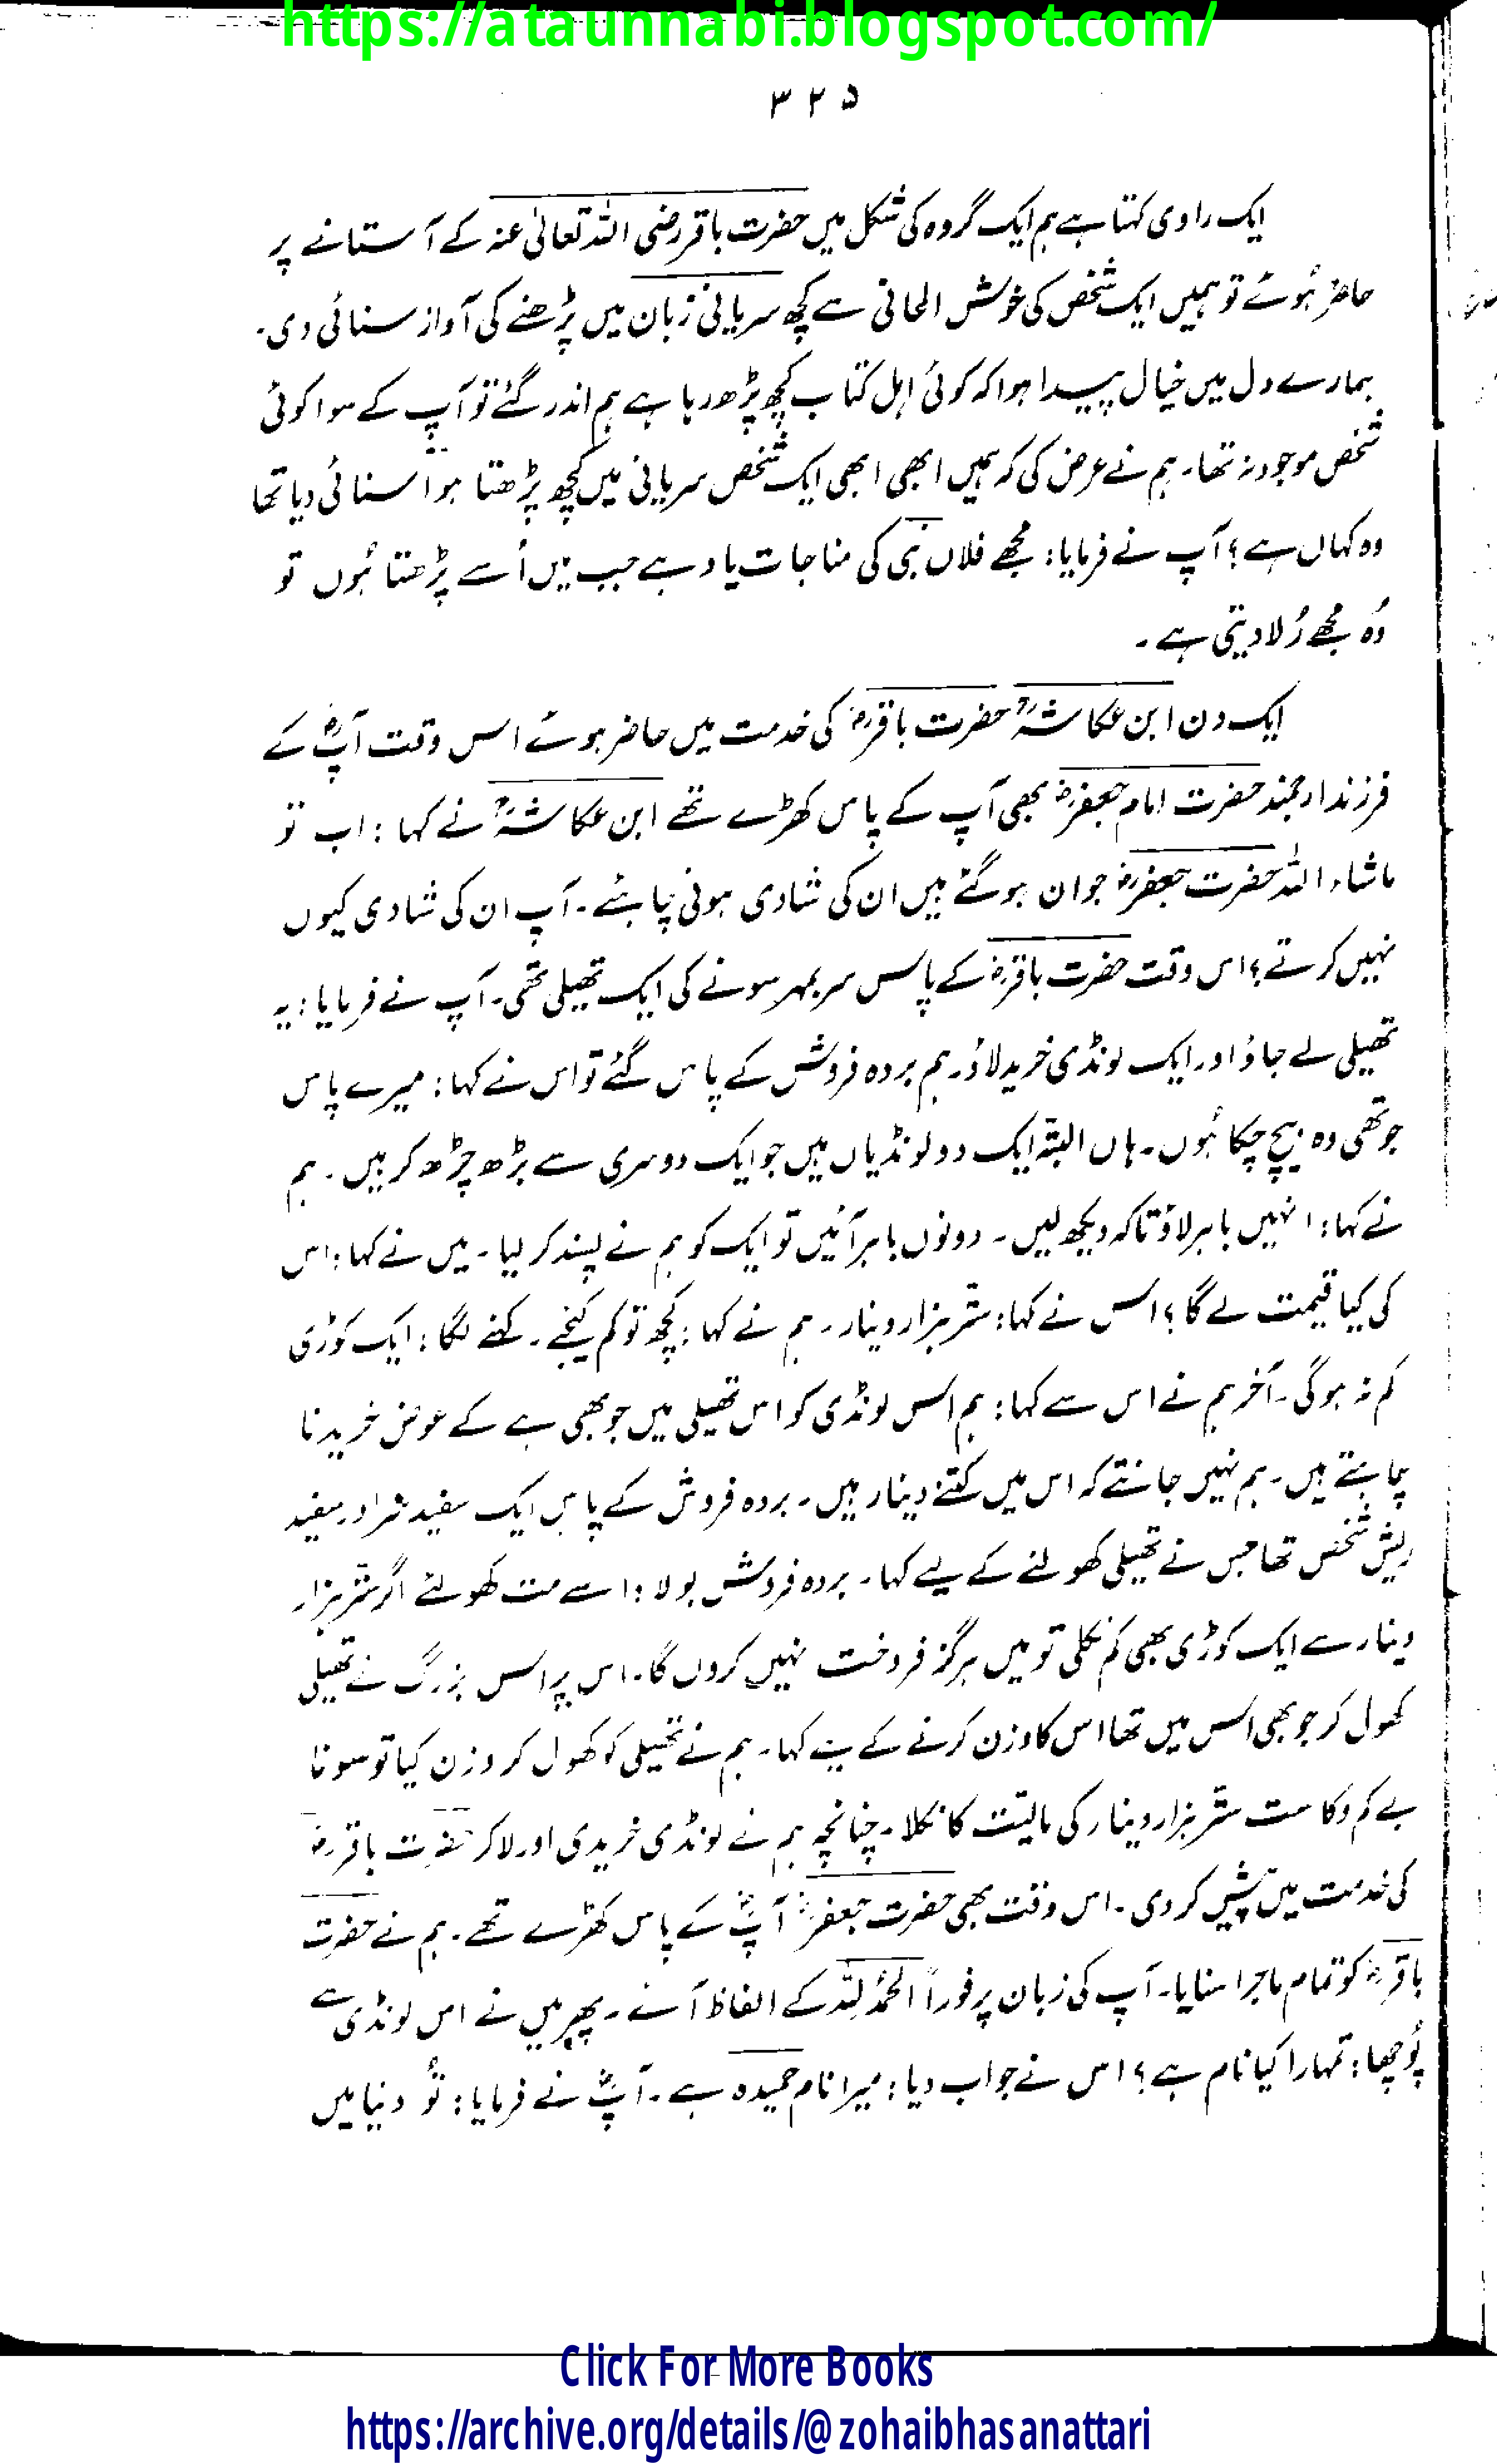 https://ataunnabi.blogspot.com/
۳۲۵
ایک راوی کہتا ہے ہم ایک گروہ کی شکل میں حضرت باقر رضی اللہ تعالیٰ عنہ کے آستانے پر
حاضر ہُوئے تو ہمیں ایک شخص کی خوش الحانی سے کچھ سریانی زبان میں پڑھنے کی آواز سنائی دی۔
ہمارے دل میں خیال پیدا ہوا کہ کوئی اہل کتاب کچھ پڑھ رہا ہے ہم اندر گئے تو آپ کے سوا کوئی
شخص موجود نہ تھا۔ ہم نے عرض کی کہ ہمیں ابھی ابھی ایک شخص سریانی میں کچھ پڑھتا ہوا سنائی دیا تھا
وہ کہاں ہے؟ آپ نے فرمایا: مجھے فلاں نبی کی مناجات یاد ہے جب میں اُسے پڑھتا ہُوں تو
وُہ مجھے رُلا دیتی ہے۔
ایک دن ابن عکاشہؒ حضرت باقرؓ کی خدمت میں حاضر ہوئے اس وقت آپؓ کے
فرزند ارجمند حضرت امام جعفرؓ بھی آپ کے پاس کھڑے تھے ابن عکاشہؒ نے کہا: اب تو
ماشاء اللہ حضرت جعفرؓ جوان ہو گئے ہیں ان کی شادی ہونی چاہئے۔ آپ ان کی شادی کیوں
نہیں کرتے؟ اس وقت حضرت باقرؓ کے پاس سربمہر سونے کی ایک تھیلی تھی۔ آپ نے فرمایا: یہ
تھیلی لے جاؤ اور ایک لونڈی خرید لاؤ۔ ہم بردہ فروش کے پاس گئے تو اس نے کہا: میرے پاس
جو تھی وہ بیچ چکا ہُوں۔ ہاں البتہ ایک دو لونڈیاں ہیں جو ایک دوسری سے بڑھ چڑھ کر ہیں۔ ہم
نے کہا: انہیں باہر لاؤ تاکہ دیکھ لیں۔ دونوں باہر آئیں تو ایک کو ہم نے پسند کر لیا۔ میں نے کہا: اس
کی کیا قیمت لے گا؟ اس نے کہا: ستّر ہزار دینار۔ ہم نے کہا: کچھ تو کم کیجئے۔ کہنے لگا: ایک کوڑی
کم نہ ہو گی۔ آخر ہم نے اس سے کہا: ہم اس لونڈی کو اس تھیلی میں جو بھی ہے کے عوض خریدنا
چاہتے ہیں۔ ہم نہیں جانتے کہ اس میں کتنے دینار ہیں۔ بردہ فروش کے پاس ایک سفید سر اور سفید
ریش شخص تھا جس نے تھیلی کھولنے کے لیے کہا۔ بردہ فروش بولا: اسے مت کھولئے اگر ستّر ہزار
دینار سے ایک کوڑی بھی کم نکلی تو میں ہرگز فروخت نہیں کروں گا۔ اس پر اس بزرگ نے تھیلی
کھول کر جو بھی اس میں تھا اس کا وزن کرنے کے لیے کہا۔ ہم نے تھیلی کو کھول کر وزن کیا تو سونا
بے کم و کاست ستّر ہزار دینار کی مالیّت کا نکلا۔ چنانچہ ہم نے لونڈی خریدی اور لا کر حضرت باقرؓ
کی خدمت میں پیش کر دی۔ اس وقت بھی حضرت جعفرؓ آپؓ کے پاس کھڑے تھے۔ ہم نے حضرت
باقرؓ کو تمام ماجرا سنایا۔ آپ کی زبان پر فوراً الحمدُ لِلّٰہ کے الفاظ آئے۔ پھر میں نے اس لونڈی سے
پُوچھا: تمہارا کیا نام ہے؟ اس نے جواب دیا: میرا نام حمیدہ ہے۔ آپؓ نے فرمایا: تُو دنیا میں
Click For More Books
https://archive.org/details/@zohaibhasanattari